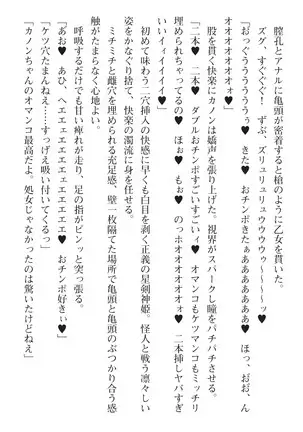 膣孔とアナルに亀頭が密着すると槍のように乙女を貫いた。
ズグ、すぐぐ！　ずぷ、ズリュリュリュウウウウゥ～～～～ッ♥
『おっぐぅううううううぅ♥　きた♥　おチンポきたぁああああああ♥　ほっ、おお、ん
オオオオオオォ♥』
股を貫く快楽にカノンは嬌声を張り上げた。視界がスパークし瞳をパチパチさせる。
『二本♥　二本♥　ダブルおチンポすごいすごいィ♥　オマンコもケツマンコもミッチリ
埋められちゃってるの♥　ほぉ♥　もぉ♥　のっホオオオオオオ♥　二本挿しヤバすぎ
いいイィイイイイ♥』
初めて味わう二穴挿入の快感に早くも白目を剥く正義の星剣神姫。怪人と戦う凛々しい
姿をかなぐり捨て、快楽の濁流に身を任せる。
ミチミチと雌穴を埋められる充足感、壁一枚隔てた場所で亀頭と亀頭のぶつかり合う感
触がたまらなく心地よい。
呼吸するだけでも甘い痺れが走り、足の指がピンッと突っ張る。
『あお♥　あひ、へエエエエエエエエエェ♥　おチンポ好きぃ♥』
「ケツ穴たまんねえ……すっげえ吸い付いてくるっ」
「カノンちゃんのオマンコ最高だよ。処女じゃなかったのは驚いたけどねえ」